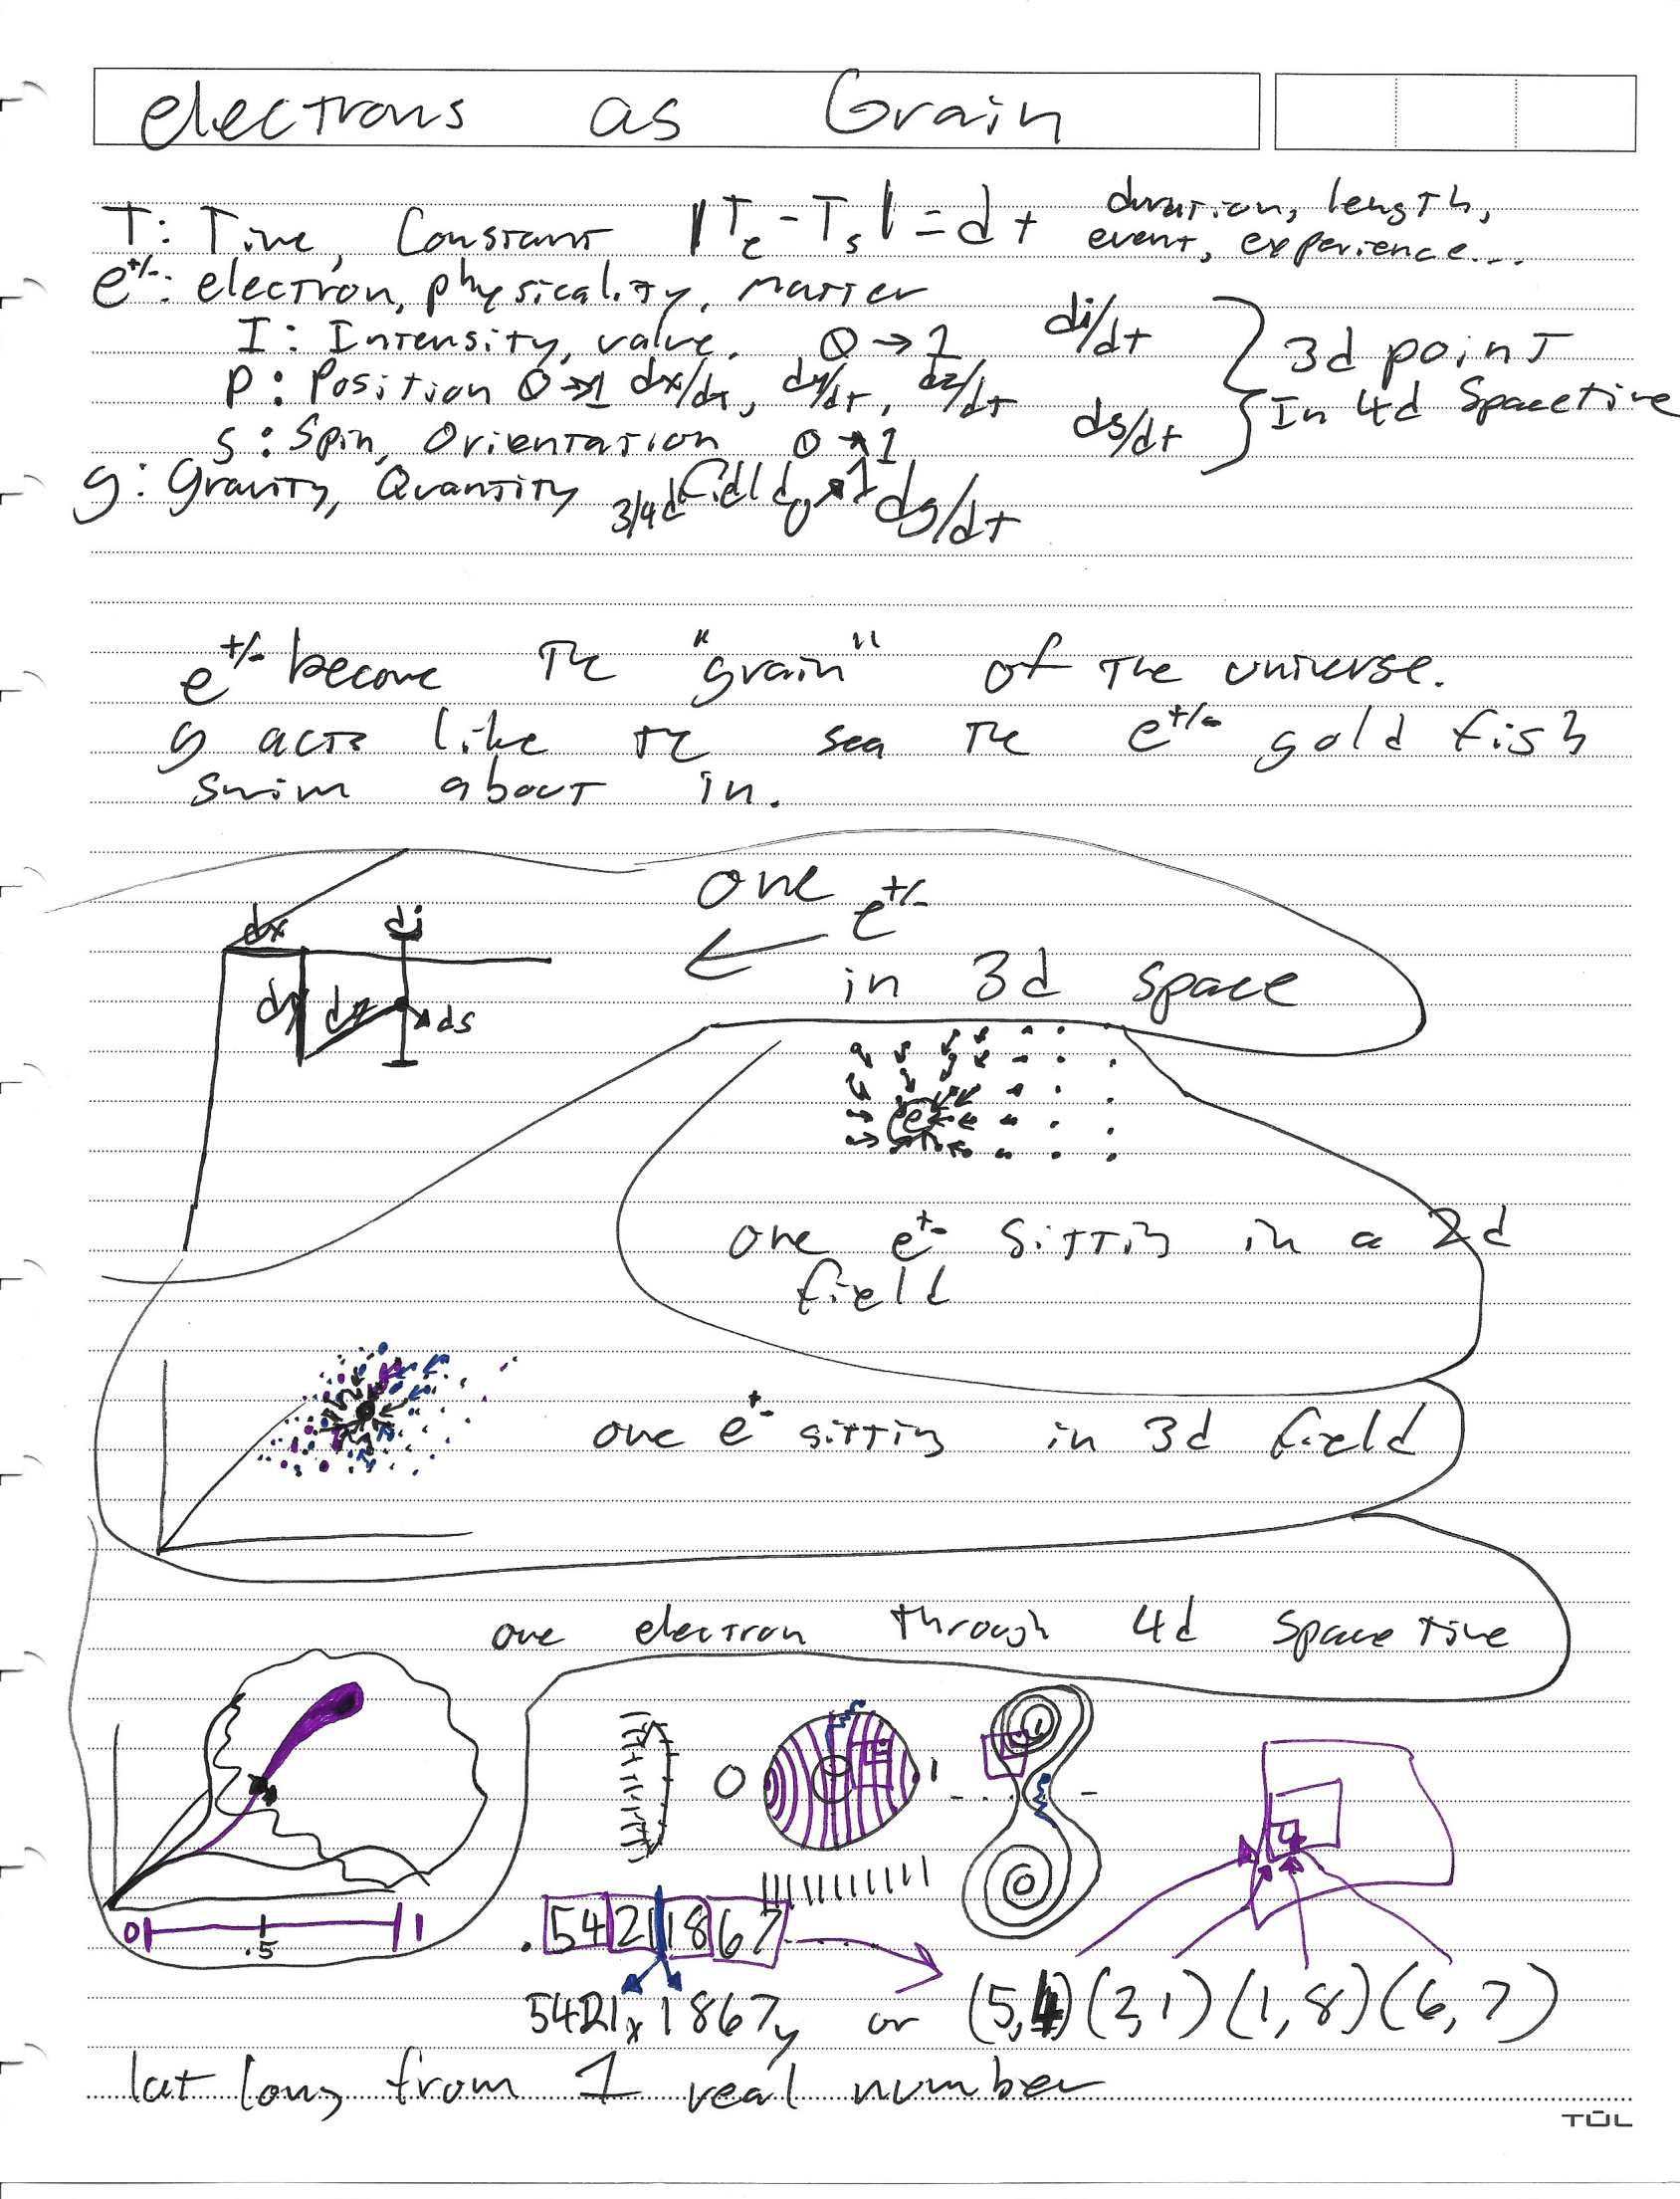 electrons as Grain
T: Time, Constant |Te - Ts| = dt duration, length,
event, experience...
e+/-: electron, physicality, matter
I: Intensity, value. 0 → 1 di/dt
P: Position 0→1 dx/dt, dy/dt, dz/dt
s: Spin, Orientation 0→1 ds/dt
3d point
In 4d Spacetime
g: gravity, Quantity 3/4d field 0→1 dg/dt
e+/- become the "grain" of the universe.
g acts like the sea the e+/- gold fish
swim about in.
one e+/-
in 3d space
dx di
dy dz ds
e
one e+- sitting in a 2d
field
one e+- sitting in 3d field
one electron through 4d space time
0 1
0 .5 1
1
0
.54211867....
5421x 1867y or (5,4)(2,1)(1,8)(6,7)
lat long from 1 real number
TŪL